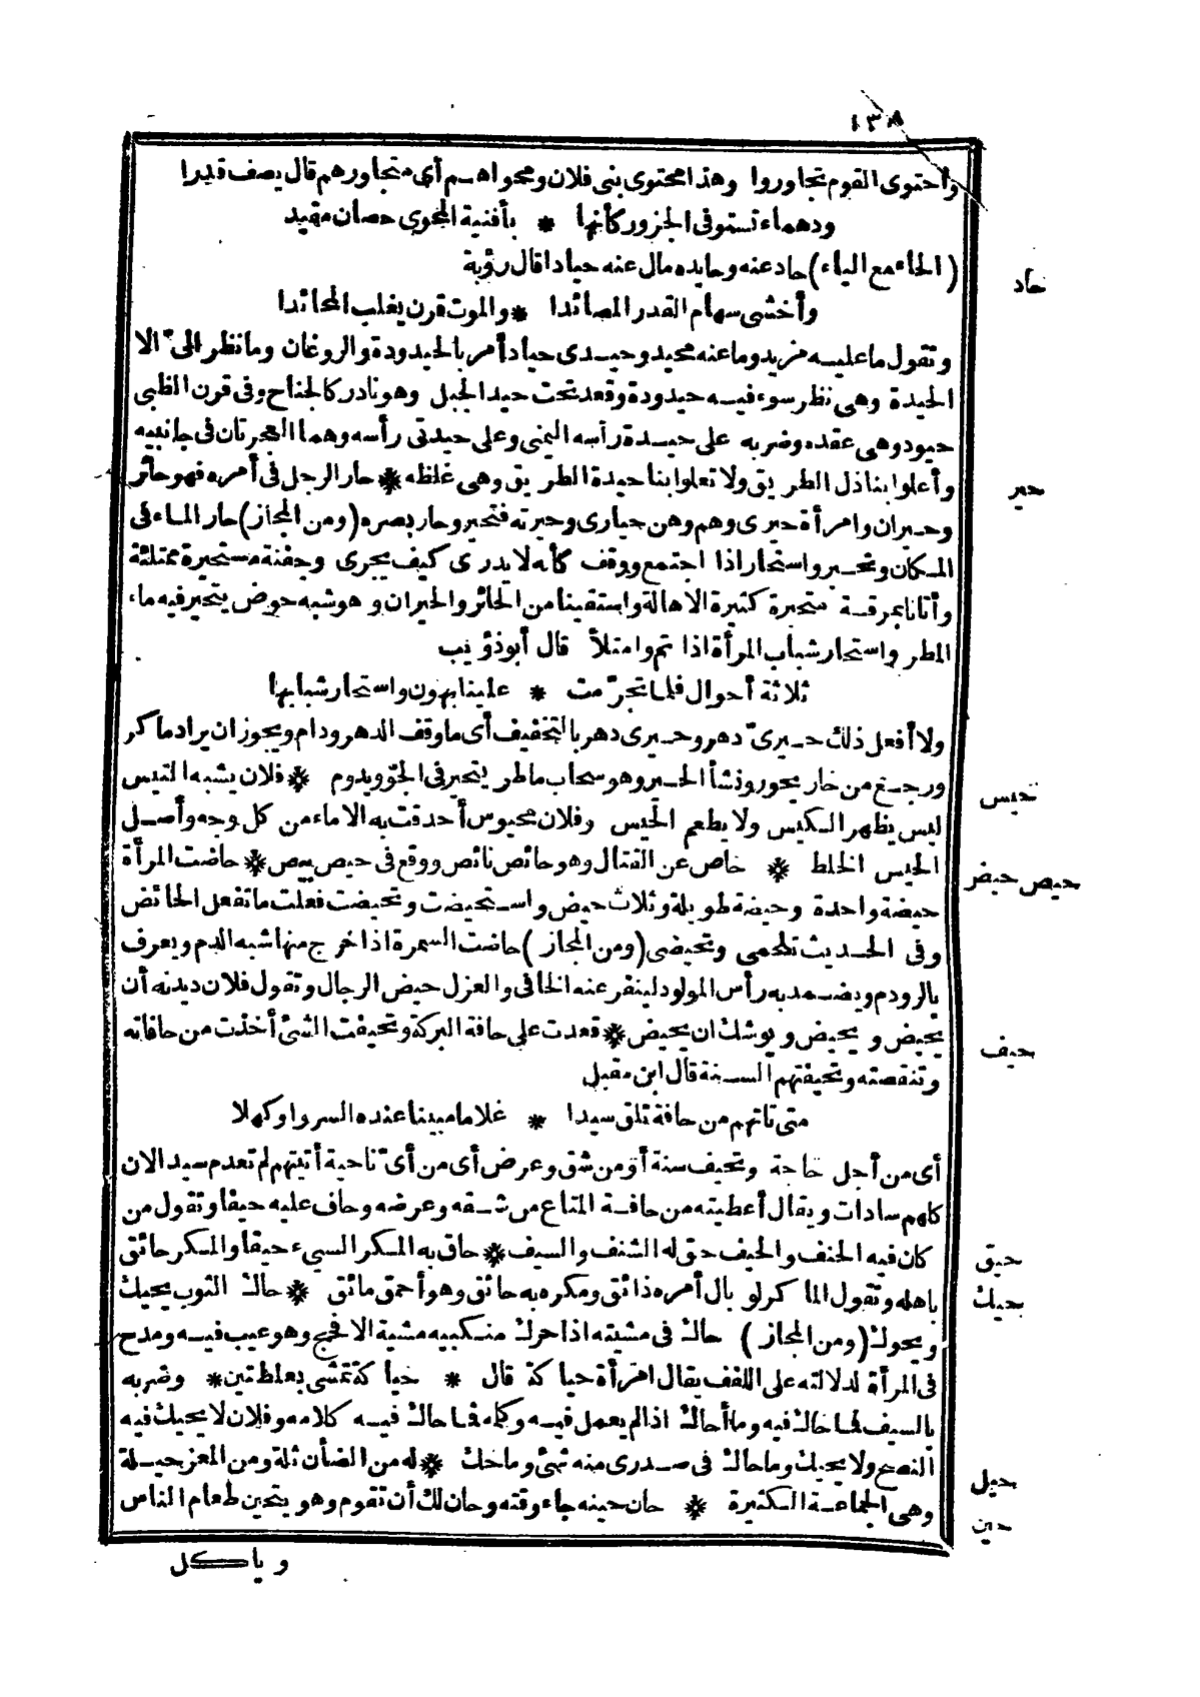 ١٣٨
واحتوى القوم تجاوروا وهذا محتوى بنى فلان ومحواهم أى متجاورهم قال يصف قديرا
ودهماء تستوفى الجزور كأنها * بأفنية المحوى حصان مقيد
(الحاء مع الياء) حاد عنه وحايده مال عنه حيادا قال رؤبة
حاد
وأخشى سهام القدر المصائدا * والموت قرن يغلب المحائدا
وتقول ما عليه مزيد وما عنه محيد وحيدى حياد أمر بالحيدودة والروغان وما نظر الىّ الا
الحيدة وهى نظر سوء فيه حيدودة وقعد تحت حيد الجبل وهو نادر كالجناح وفى قرن الظبى
حيود وهى عقده وضربه على حيدة رأسه اليمنى وعلى حيدتى رأسه وهما العجرتان فى جانبيه
وأعلوا بنا ذل الطريق ولا تعلوا بنا حيدة الطريق وهى غلظه * حار الرجل فى أمره فهو حائر
حير
وحيران وامرأة حيرى وهم وهن حيارى وحيرته فتحير وحار بصره (ومن المجاز) حار الماء فى
المكان وتحير واستحار اذا اجتمع ووقف كأنه لا يدرى كيف يجرى وجفنة مستحيرة ممتلئة
وأتانا بمرقة متحيرة كثيرة الاهالة واستقينا من الحائر والحيران وهو شبه حوض يتحير فيه ماء
المطر واستحار شباب المرأة اذا تم وامتلأ قال أبو ذؤيب
ثلاثة أحوال فلما تجرّمت * علينا بهون واستحار شبابها
ولا أفعل ذلك حيرىّ دهر وحيرى دهر بالتخفيف أى ما وقف الدهر ودام ويجوز ان يراد ما كر
ورجع من حار يحور ونشأ الحير وهو سحاب ماطر يتحير فى الجوّ ويدوم * فلان يشبه التيس
حيس
ليس يظهر الكيس ولا يطعم الحيس وفلان محيوس أحدقت به الاماء من كل وجه وأصل
الحيس الخلط * حاص عن القتال وهو حائص نائص ووقع فى حيص بيص * حاضت المرأة
حيص حيض
حيضة واحدة وحيضة طويلة وثلاث حيض واستحيضت وتحيضت فعلت ما تفعل الحائض
وفى الحديث تلجمى وتحيضى (ومن المجاز) حاضت السمرة اذا خرج منها شبه الدم ويعرف
بالرودم ويضمد به رأس المولود لينفر عنه الخافى والعزل حيض الرجال وتقول فلان ديدنه أن
يحيض ويحيض ويوشك ان يحيض * قعدت على حافة البركة وتحيفت الشئ أخذت من حافاته
حيف
وتنقصته وتحيفتهم السنة قال ابن مقبل
متى تاتهم من حافة تلق سيدا * غلاما مبينا عنده السرو او كهلا
أى من أجل حاجة وتحيف سنة أو من شق وعرض أى من أىّ ناحية أتيتهم لم تعدم سيدا لان
كلهم سادات ويقال أعطيته من حافة المتاع من شقه وعرضه وحاف عليه حيفا وتقول من
كان فيه الحنف والحيف حق له الشنف والسيف * حاق به المكر السيء حيقا والمكر حائق
حيق
باهله وتقول الماكر لو بال أمره ذائق ومكره به حائق وهو أحمق مائق * حاك الثوب يحيك
حيك
ويحوك (ومن المجاز) حاك فى مشيته اذا حرك منكبيه مشية الافحج وهو عيب فيه ومدح
فى المرأة لدلالته على اللفف يقال امرأة حياكة قال * حياكة تمشى بعلطتين * وضربه
بالسيف فما حاك فيه وما أحاك اذا لم يعمل فيه وكلمه فما حاك فيه كلامه وفلان لا يحيك فيه
النصح ولا يحيك وما حاك فى صدرى منه شئ وما حك * له من الضأن ثلة ومن المعز حيلة
حيل
وهى الجماعة الكثيرة * حان حينه جاء وقته وحان لك أن تقوم وهو يتحين طعام الناس
حين
وياكل